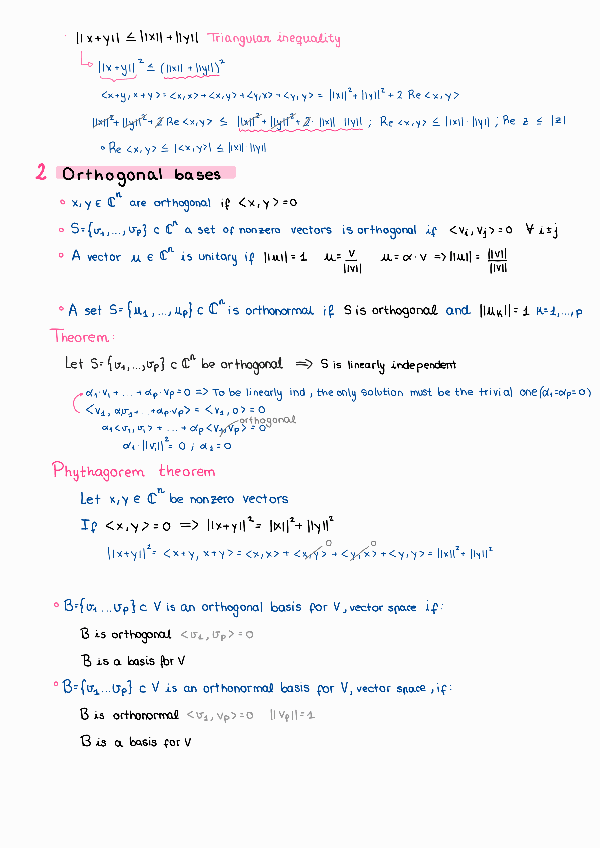 ||x+y|| ≤ ||x|| + ||y|| Triangular inequality
||x+y||² ≤ (||x|| + ||y||)²
<x+y, x+y> = <x,x> + <x,y> + <y,x> + <y,y> = ||x||² + ||y||² + 2 Re <x,y>
||x||² + ||y||² + 2 Re <x,y> ≤ ||x||² + ||y||² + 2 · ||x|| ||y|| ; Re <x,y> ≤ ||x|| · ||y|| ; Re z ≤ |z|
Re <x,y> ≤ |<x,y>| ≤ ||x|| ||y||
2 Orthogonal bases
x, y ∈ ℂⁿ are orthogonal if <x,y> = 0
S={v₁,...,vₚ} ⊂ ℂⁿ a set of nonzero vectors is orthogonal if <vᵢ, vⱼ> = 0 ∀ i≤j
A vector u ∈ ℂⁿ is unitary if ||u|| = 1 u = v/||v|| u = α · v => ||u|| = ||v||/||v||
A set S={u₁,...,uₚ} ⊂ ℂⁿ is orthonormal if S is orthogonal and ||uₖ|| = 1 k=1,...,p
Theorem:
Let S={v₁,...,vₚ} ⊂ ℂⁿ be orthogonal => S is linearly independent
α₁·v₁ + ... + αₚ·vₚ = 0 => To be linearly ind, the only solution must be the trivial one (α₁=αₚ=0)
<v₁, αv₁ + ... + αₚ·vₚ> = <v₁, 0> = 0
orthogonal
α₁<v₁, v₁> + ... + αₚ<v₁, vₚ> = 0
α₁ · ||v₁||² = 0 ; α₁ = 0
Phythagorem theorem
Let x, y ∈ ℂⁿ be nonzero vectors
If <x,y> = 0 => ||x+y||² = ||x||² + ||y||²
||x+y||² = <x+y, x+y> = <x,x> + <x,y> 0 + <y,x> 0 + <y,y> = ||x||² + ||y||²
B={v₁...vₚ} ⊂ V is an orthogonal basis for V, vector space if:
B is orthogonal <v₁, vₚ> = 0
B is a basis for V
B={v₁...vₚ} ⊂ V is an orthonormal basis for V, vector space, if:
B is orthonormal <v₁, vₚ> = 0 ||vₚ|| = 1
B is a basis for V